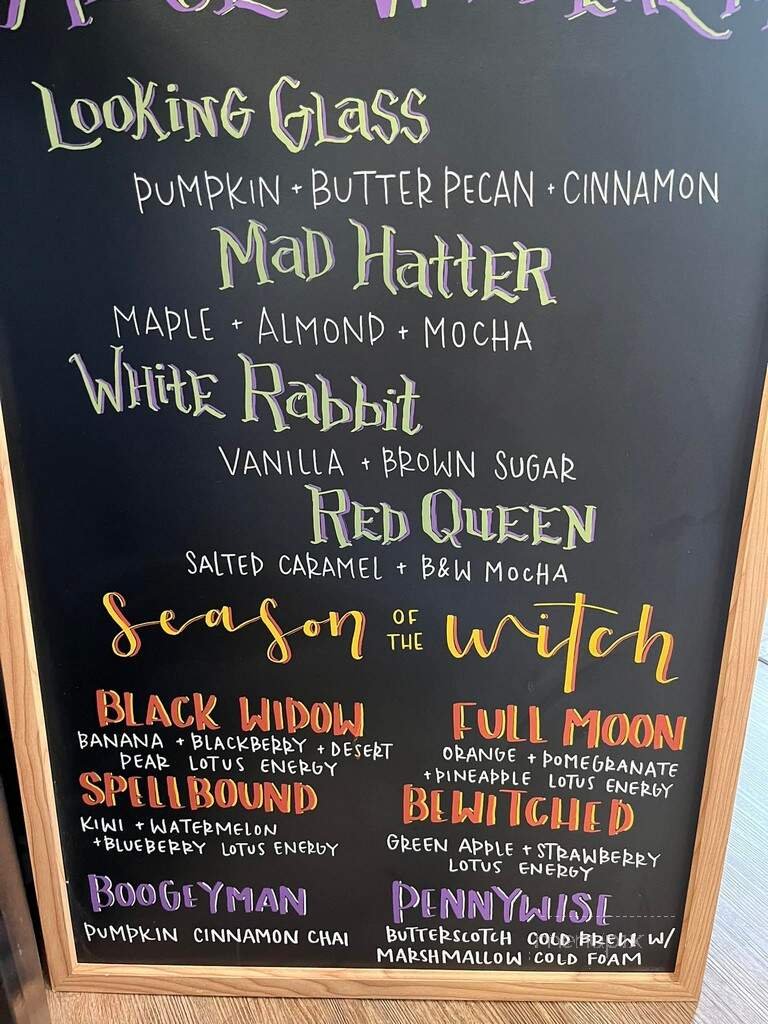 LOOKING GLASS
PUMPKIN + BUTTER PECAN + CINNAMON
MAD HATTER
MAPLE + ALMOND + MOCHA
WHITE RABBIT
VANILLA + BROWN SUGAR
RED QUEEN
SALTED CARAMEL + B&W MOCHA
season OF THE witch
BLACK WIDOW
BANANA + BLACKBERRY + DESERT
PEAR LOTUS ENERGY
FULL MOON
ORANGE + POMEGRANATE
+ PINEAPPLE LOTUS ENERGY
SPELLBOUND
KIWI + WATERMELON
+ BLUEBERRY LOTUS ENERGY
BEWITCHED
GREEN APPLE + STRAWBERRY
LOTUS ENERGY
BOOGEYMAN
PUMPKIN CINNAMON CHAI
PENNYWISE
BUTTERSCOTCH COLD BREW W/
MARSHMALLOW COLD FOAM